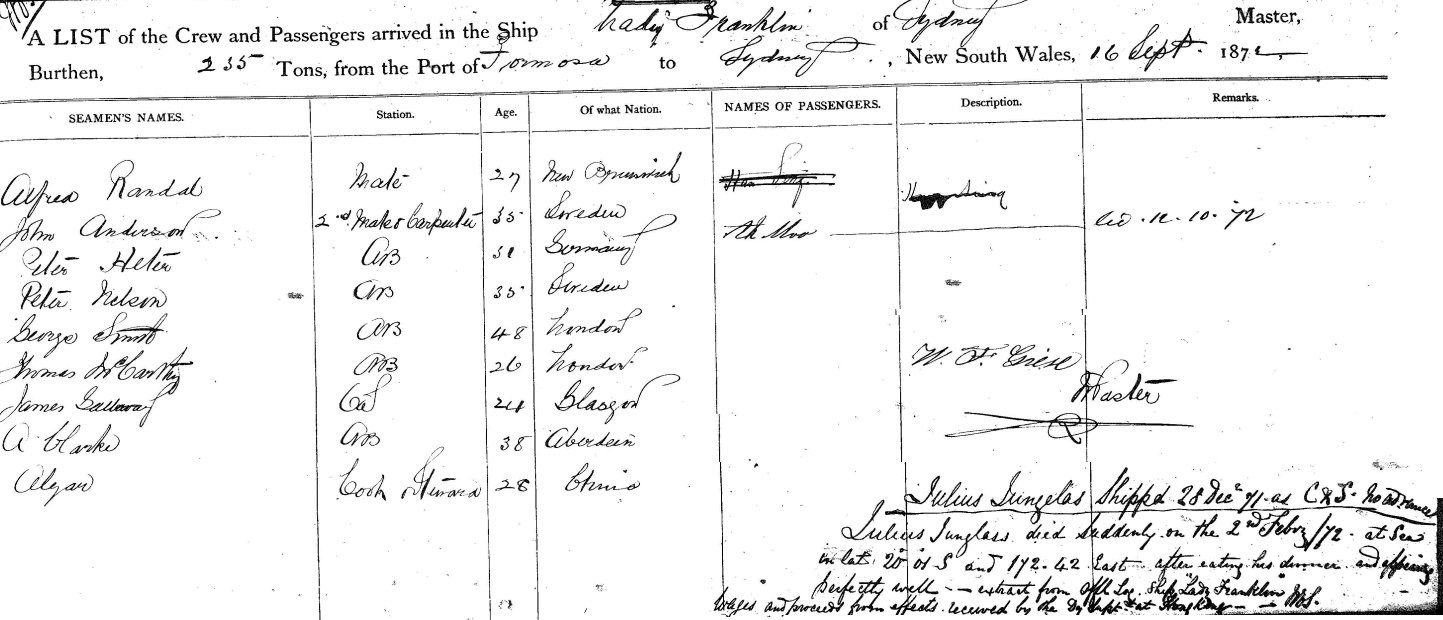 A LIST of the Crew and Passengers arrived in the Ship Lady Franklin of Sydney Master,
Burthen, 235 Tons, from the Port of Formosa to Sydney, New South Wales, 16 Sept. 1872
SEAMEN'S NAMES. Station. Age. Of what Nation. NAMES OF PASSENGERS. Description. Remarks.
Alfred Randal Mate 27 New Brunswick
John Anderson 2nd Mate & Carpenter 35 Sweden Ah Moo 12.10.72
Peter Heter AB 31 Germany
Peter Nelson AB 35 Sweden
George Smith AB 48 London
Thomas McCarthy AB 26 London
James Galloway 24 Glasgow
A Clarke AB 38 Aberdeen
Cook & Steward 28 China
W. F. Giese
Master
Julius Shipped 28 Decr 71 as C & S. No advance
Julius Junglass died suddenly on the 2nd Febry /72 at Sea
in lat 20° 01 S and 172.42 East after eating his dinner and appearing
perfectly well — extract from Offl Log Ship "Lady Franklin"
Wages and proceeds from effects received by the at Hong Kong